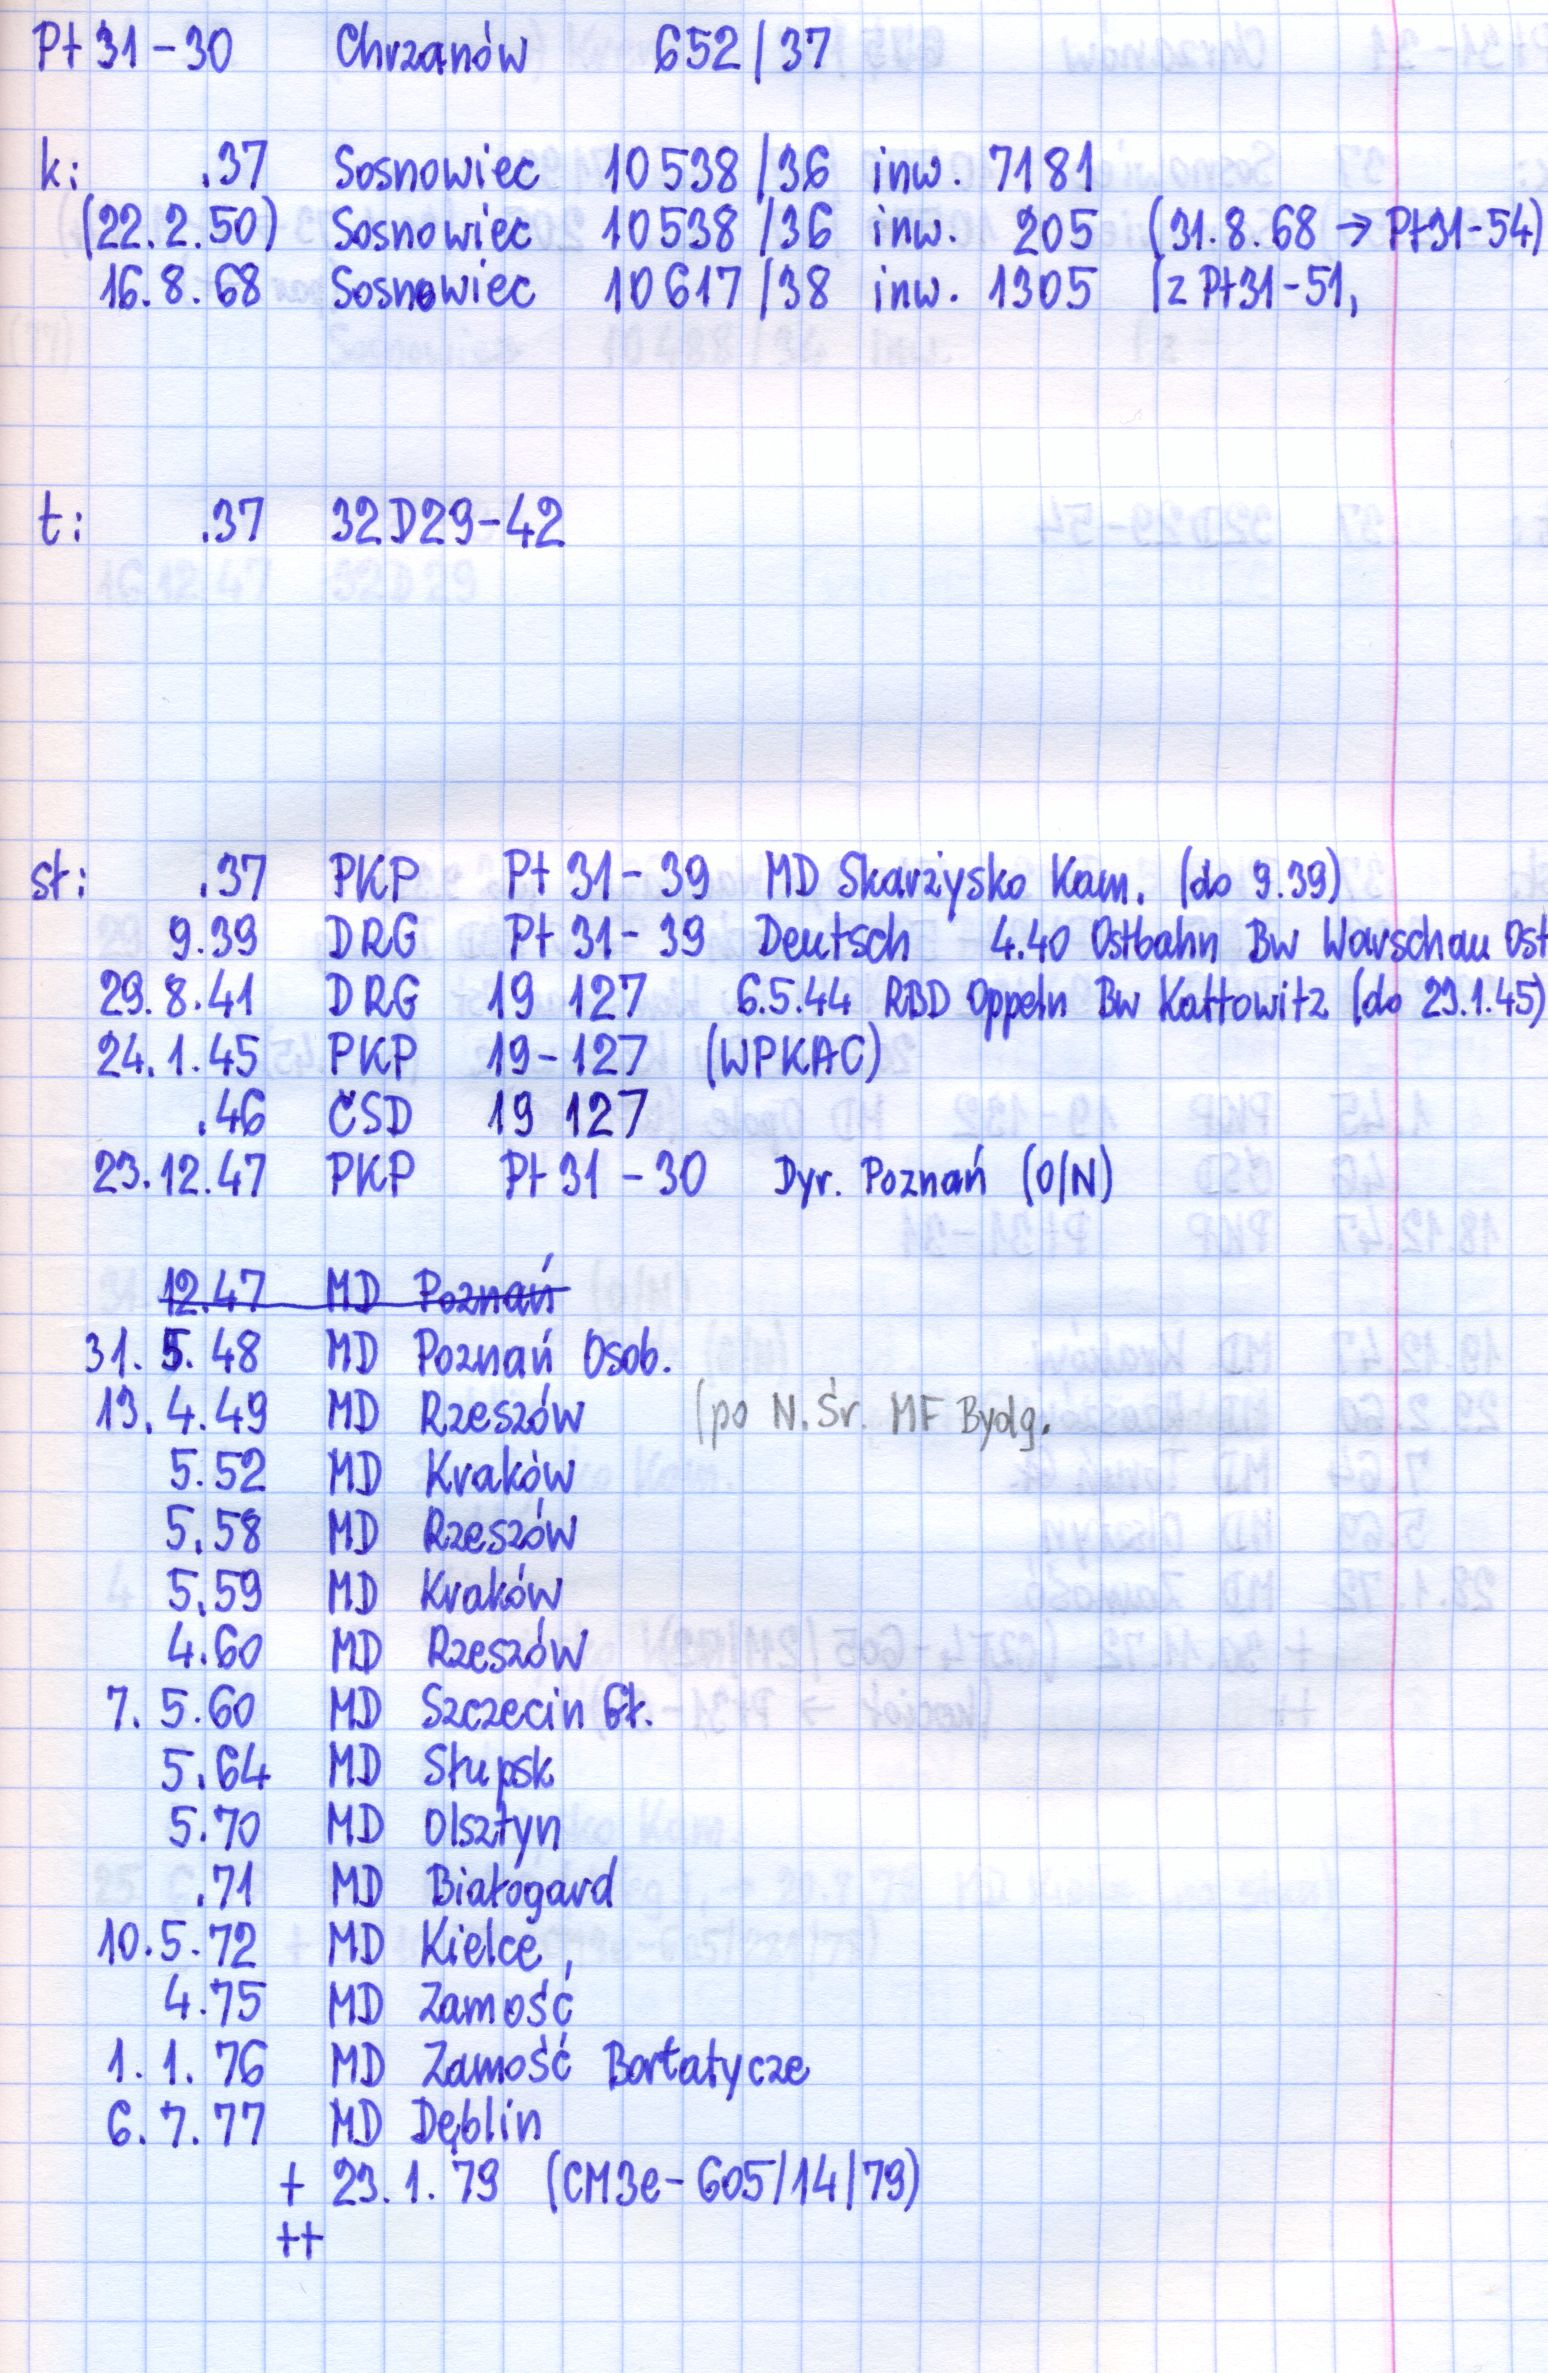 Pt 31-30 Chrzanów 652/37
k: .37 Sosnowiec 10538/36 inw. 7181
(22.2.50) Sosnowiec 10538/36 inw. 205 (31.8.68 → Pt31-54)
16.8.68 Sosnowiec 10617/38 inw. 1305 (z Pt31-51,
t: .37 32D29-42
sł: .37 PKP Pt 31-39 MD Skarżysko Kam. (do 9.39)
9.39 DRG Pt 31-39 Deutsch 4.40 Ostbahn Bw Warschau Ost
29.8.41 DRG 19 127 6.5.44 RBD Oppeln Bw Kattowitz (do 23.1.45)
24.1.45 PKP 19-127 (WPKAC)
.46 ČSD 19 127
23.12.47 PKP Pt 31-30 Dyr. Poznań (O/N)
12.47 MD Poznań
31.5.48 MD Poznań Osob.
13.4.49 MD Rzeszów (po N.Śr. MF Bydg.
5.52 MD Kraków
5.58 MD Rzeszów
5.59 MD Kraków
4.60 MD Rzeszów
7.5.60 MD Szczecin Gł.
5.64 MD Słupsk
5.70 MD Olsztyn
.71 MD Białogard
10.5.72 MD Kielce
4.75 MD Zamość
1.1.76 MD Zamość Bortatycze
6.7.77 MD Dęblin
+ 23.1.79 (CM3e-605/14/79)
++